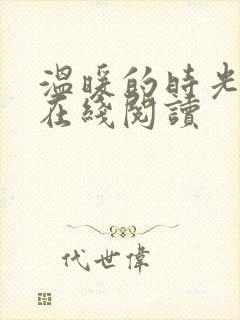 溫暖的時光
在綫閱讀
代世偉